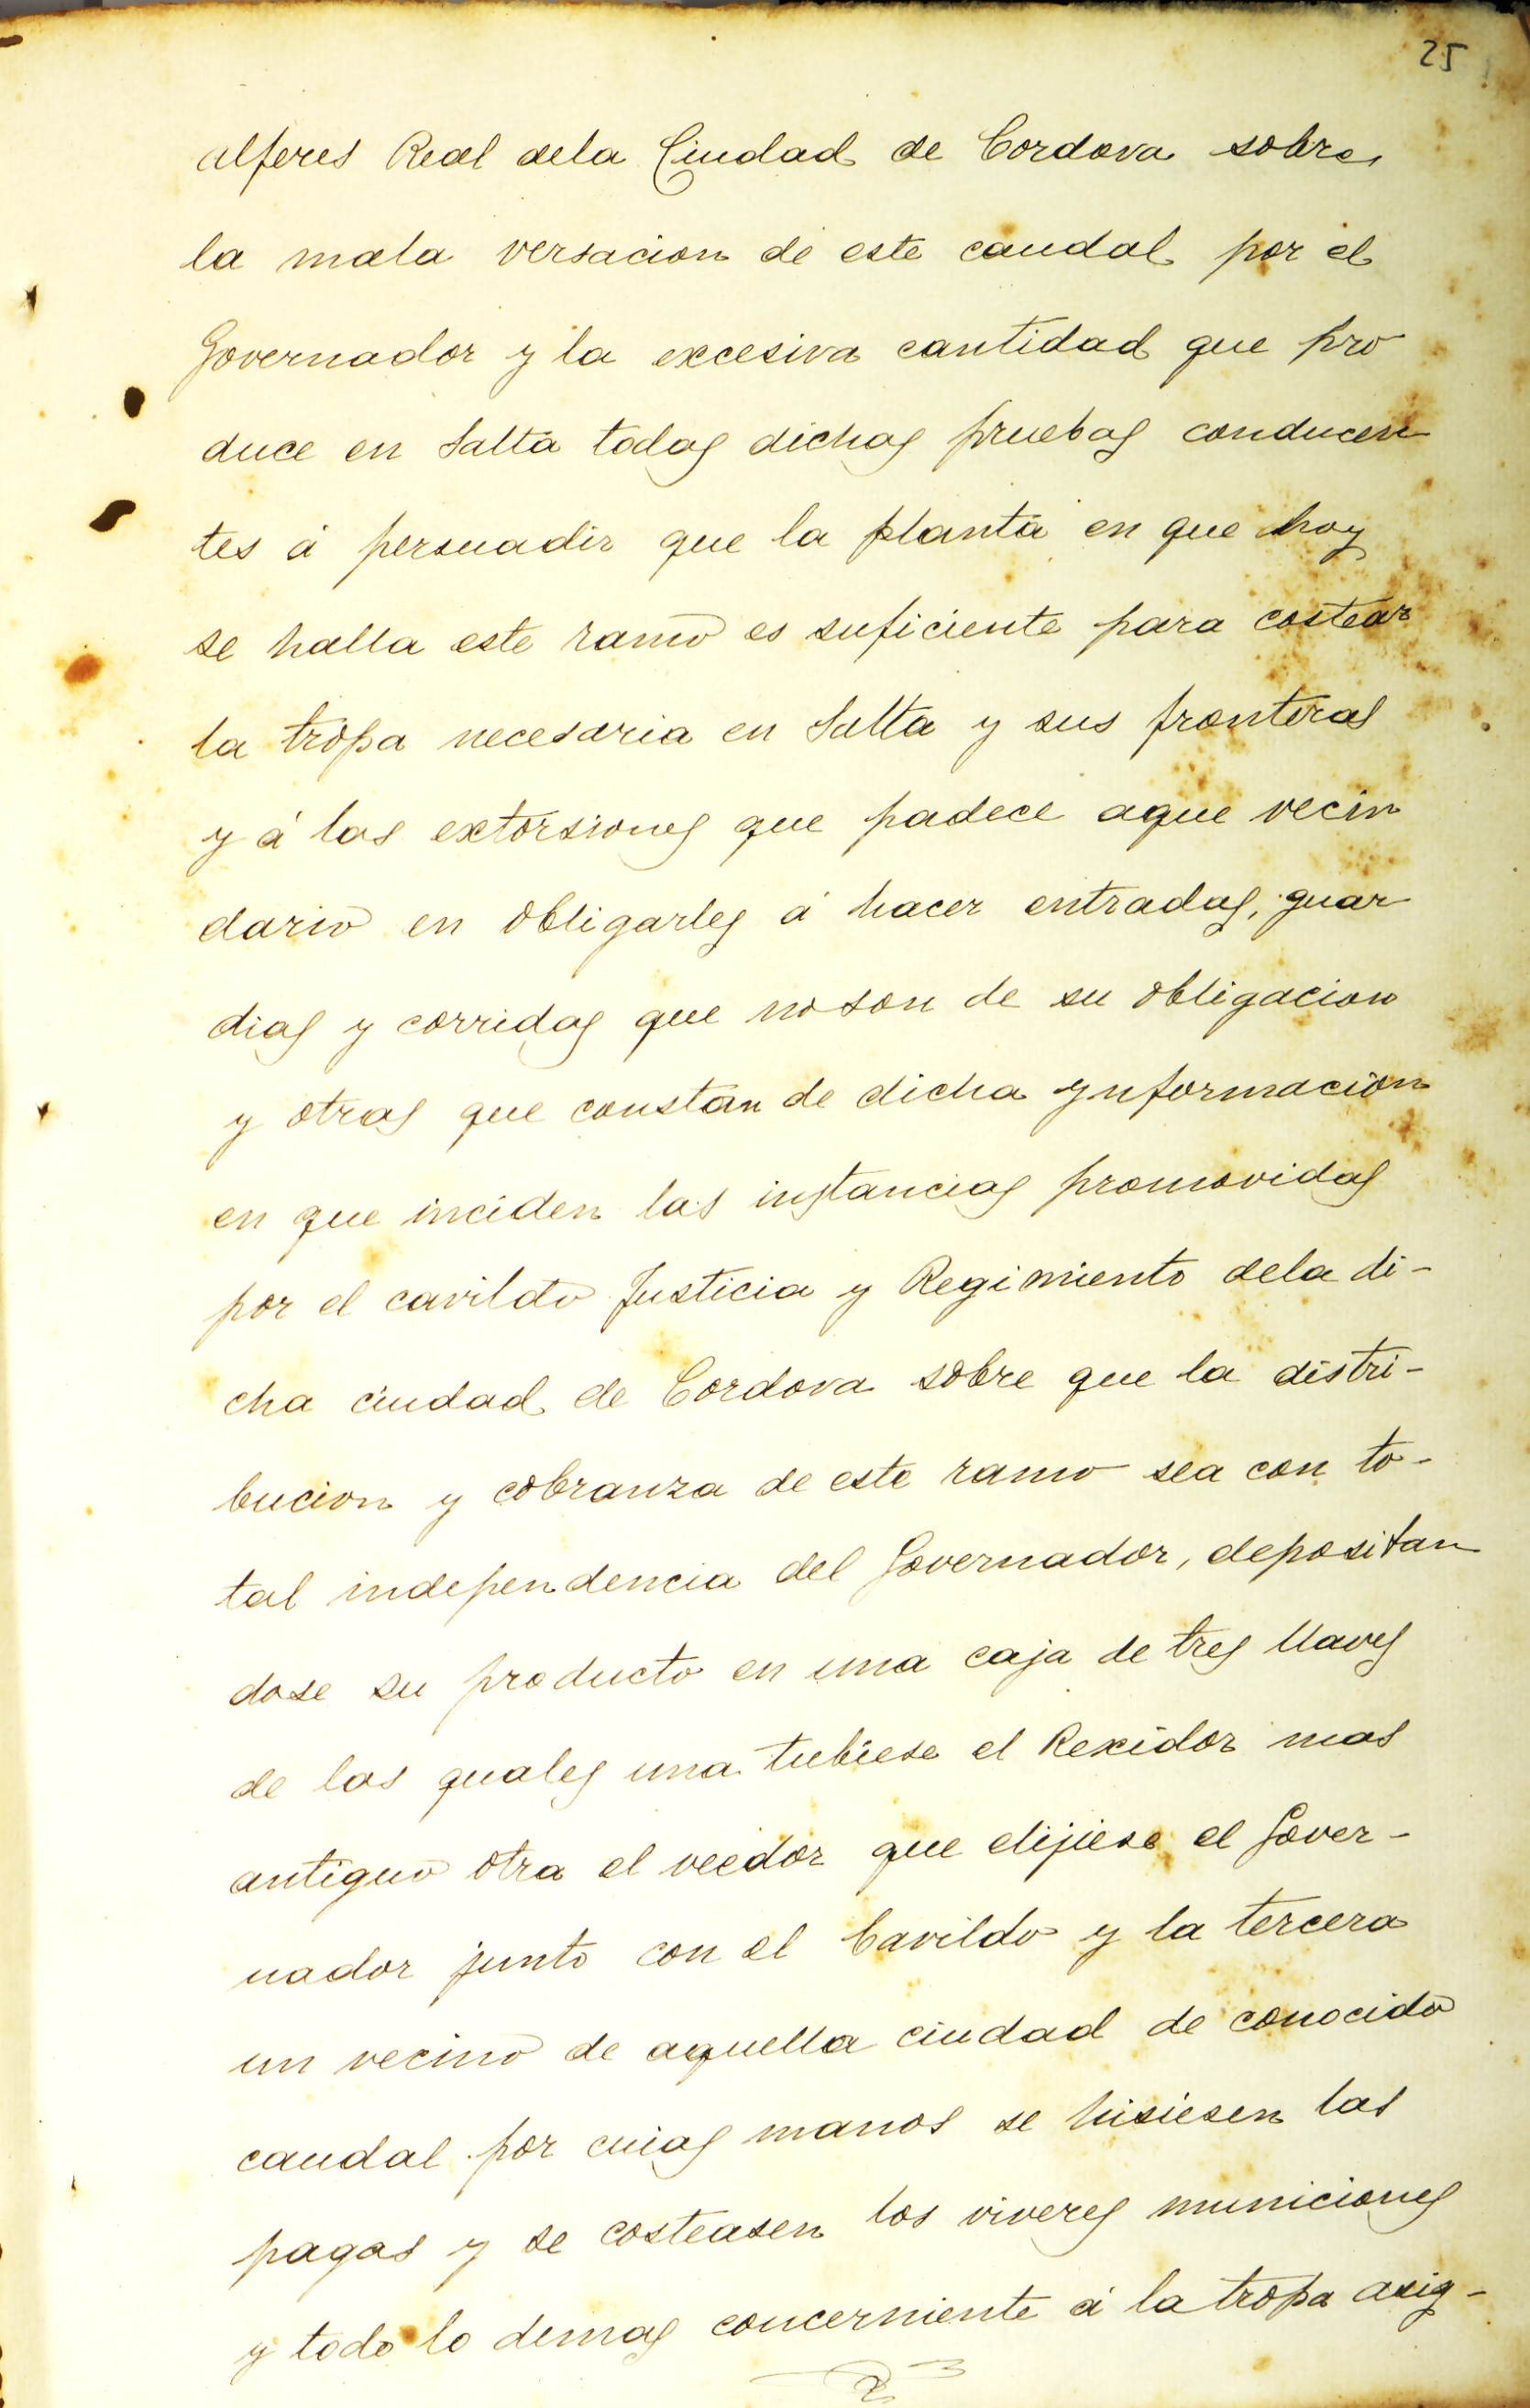 25
alferes Real dela Ciudad de Cordova sobre
la mala versacion de este caudal por el
Governador y la excesiva cantidad que pro
duce en Salta todas dichas pruebas conducen
tes á persuadir que la planta en que hoy
se halla este ramo es suficiente para costear
la tropa necesaria en Salta y sus fronteras
y á las extorsiones que padece aque vecin
dario en obligarles á hacer entradas, guar
dias y corridas que no son de su obligacion
y otras que constan de dicha ynformacion
en que inciden las instancias promovidas
por el cavildo Justicia y Regimiento dela di-
cha ciudad de Cordova sobre que la distri-
bucion y cobranza de este ramo sea con to-
tal independencia del Governador, depositan
dose su producto en una caja de tres llaves
de las quales una tubiese el Rexidor mas
antiguo otra el veedor que elijiese el Gover-
nador junto con el Cavildo y la tercera
un vecino de aquella ciudad de conocido
caudal por cuias manos se hisiesen las
pagas y se costeasen los viveres municiones
y todo lo demas concerniente á la tropa asig-